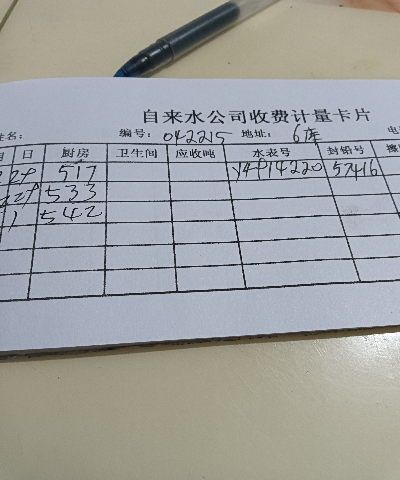 自来水公司收费计量卡片
姓名： 编号：042215 地址：6库
月 日 厨房 卫生间 应收吨 水表号 封铅号
517 57416
533
1 542